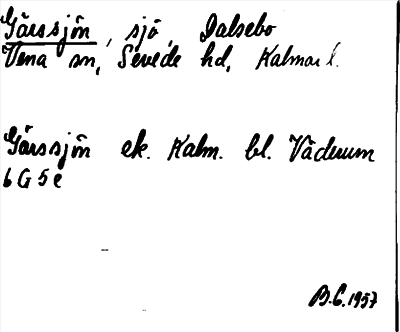 Gårssjön, sjö, Dalsebo
Vena sn, Sevede hd, Kalmar l.
Gårssjön ek. Kalm. bl. Väderum
6 G 5 e
B.C. 1957